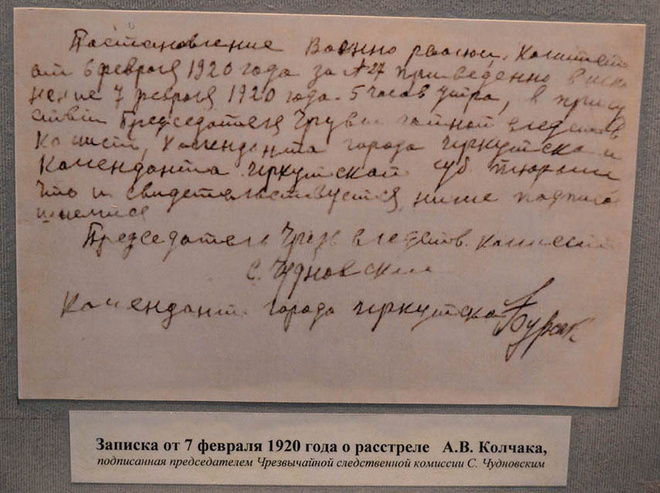 Постановление Военно револю. Комитета
от 6 февроля 1920 года за №27 приведенно в испо
нение 7 февроля 1920 года. 5 часов утра, в присут
ствии Председателя Чрезвычайной следств
Комисии, Коменданта города Иркутска и
Коменданта Иркутской губ тюрьми
Что и свидетельствуется ниже подписа
шимися
Председатель Чрезв следств. комисии
С. Чудновский
Комендант города Иркутска Бурсак.
Записка от 7 февраля 1920 года о расстреле А.В. Колчака,
подписанная председателем Чрезвычайной следственной комиссии С. Чудновским